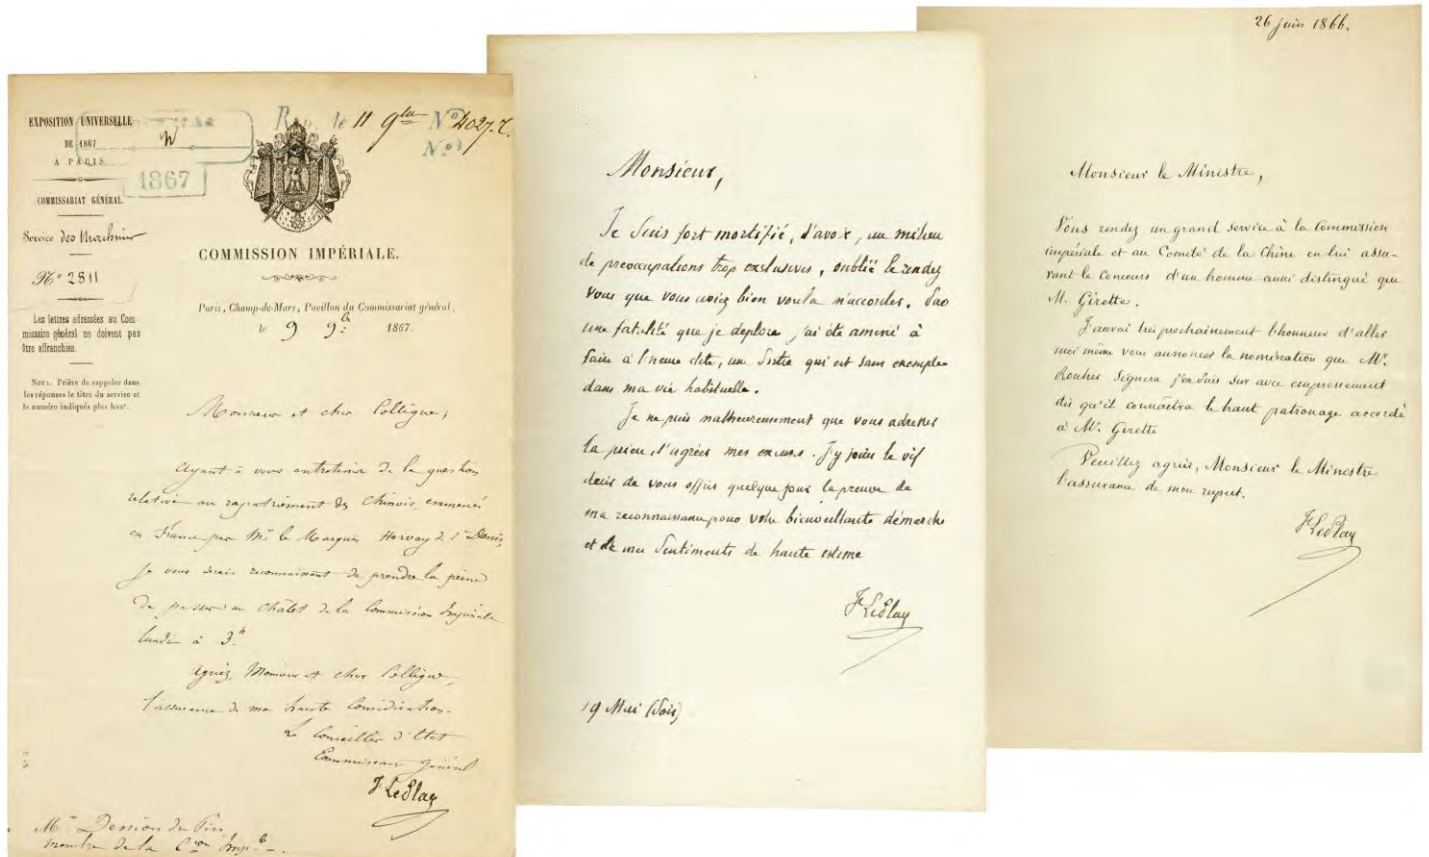 EXPOSITION UNIVERSELLE
DE 1867
À PARIS.
COMMISSARIAT GÉNÉRAL.
Service des
Nº 2811
Les lettres adressées au Com-
missaire général ne doivent pas
être affranchies.
NOTA. Prière de rappeler dans
les réponses le titre du service et
le numéro indiqués plus haut.
1867
le 11 9bre Nº 4027. C.
Nº
COMMISSION IMPÉRIALE.
Paris, Champ-de-Mars, Pavillon du Commissariat général,
le 9 9b: 1867.
Monsieur et cher Collègue,
Ayant à vous entretenir de la question
relative au rapatriement des Chinois emmenés
en France par Mr le Marquis Hervey de St Denis,
je vous serais reconnaissant de prendre la peine
de passer au Châlet de la Commission Impériale
lundi à 3h
Agréez, Monsieur et cher Collègue,
l'assurance de ma haute Considération.
Le Conseiller d'Etat
Commissaire général
F LePlay
Mr
membre de la Con Imple.
Monsieur,
Je suis fort mortifié, d'avoir, au milieu
de préoccupations trop exclusives, oublié le rendez
vous que vous aviez bien voulu m'accorder. Par
une fatalité que je déplore j'ai été amené à
faire à l'heure dite, une qui est sans exemple
dans ma vie habituelle.
Je ne puis malheureusement que vous adresser
la prière d'agréer mes excuses. J'y joins le vif
désir de vous offrir quelque jour la preuve de
ma reconnaissance pour votre bienveillante démarche
et de mes sentiments de haute estime
F LePlay
19 Mai (Soir)
26 juin 1866.
Monsieur le Ministre,
Vous rendez un grand service à la Commission
impériale et au Comité de la Chine en lui assu-
rant le Concours d'un homme aussi distingué que
M. Girette.
J'aurai très prochainement l'honneur d'aller
moi même vous annoncer la nomination que Mr.
Rouher signera j'en suis sur avec empressement
dès qu'il connaîtra le haut patronage accordé
à Mr. Girette
Veuillez agréer, Monsieur le Ministre
l'assurance de mon respect.
F LePlay